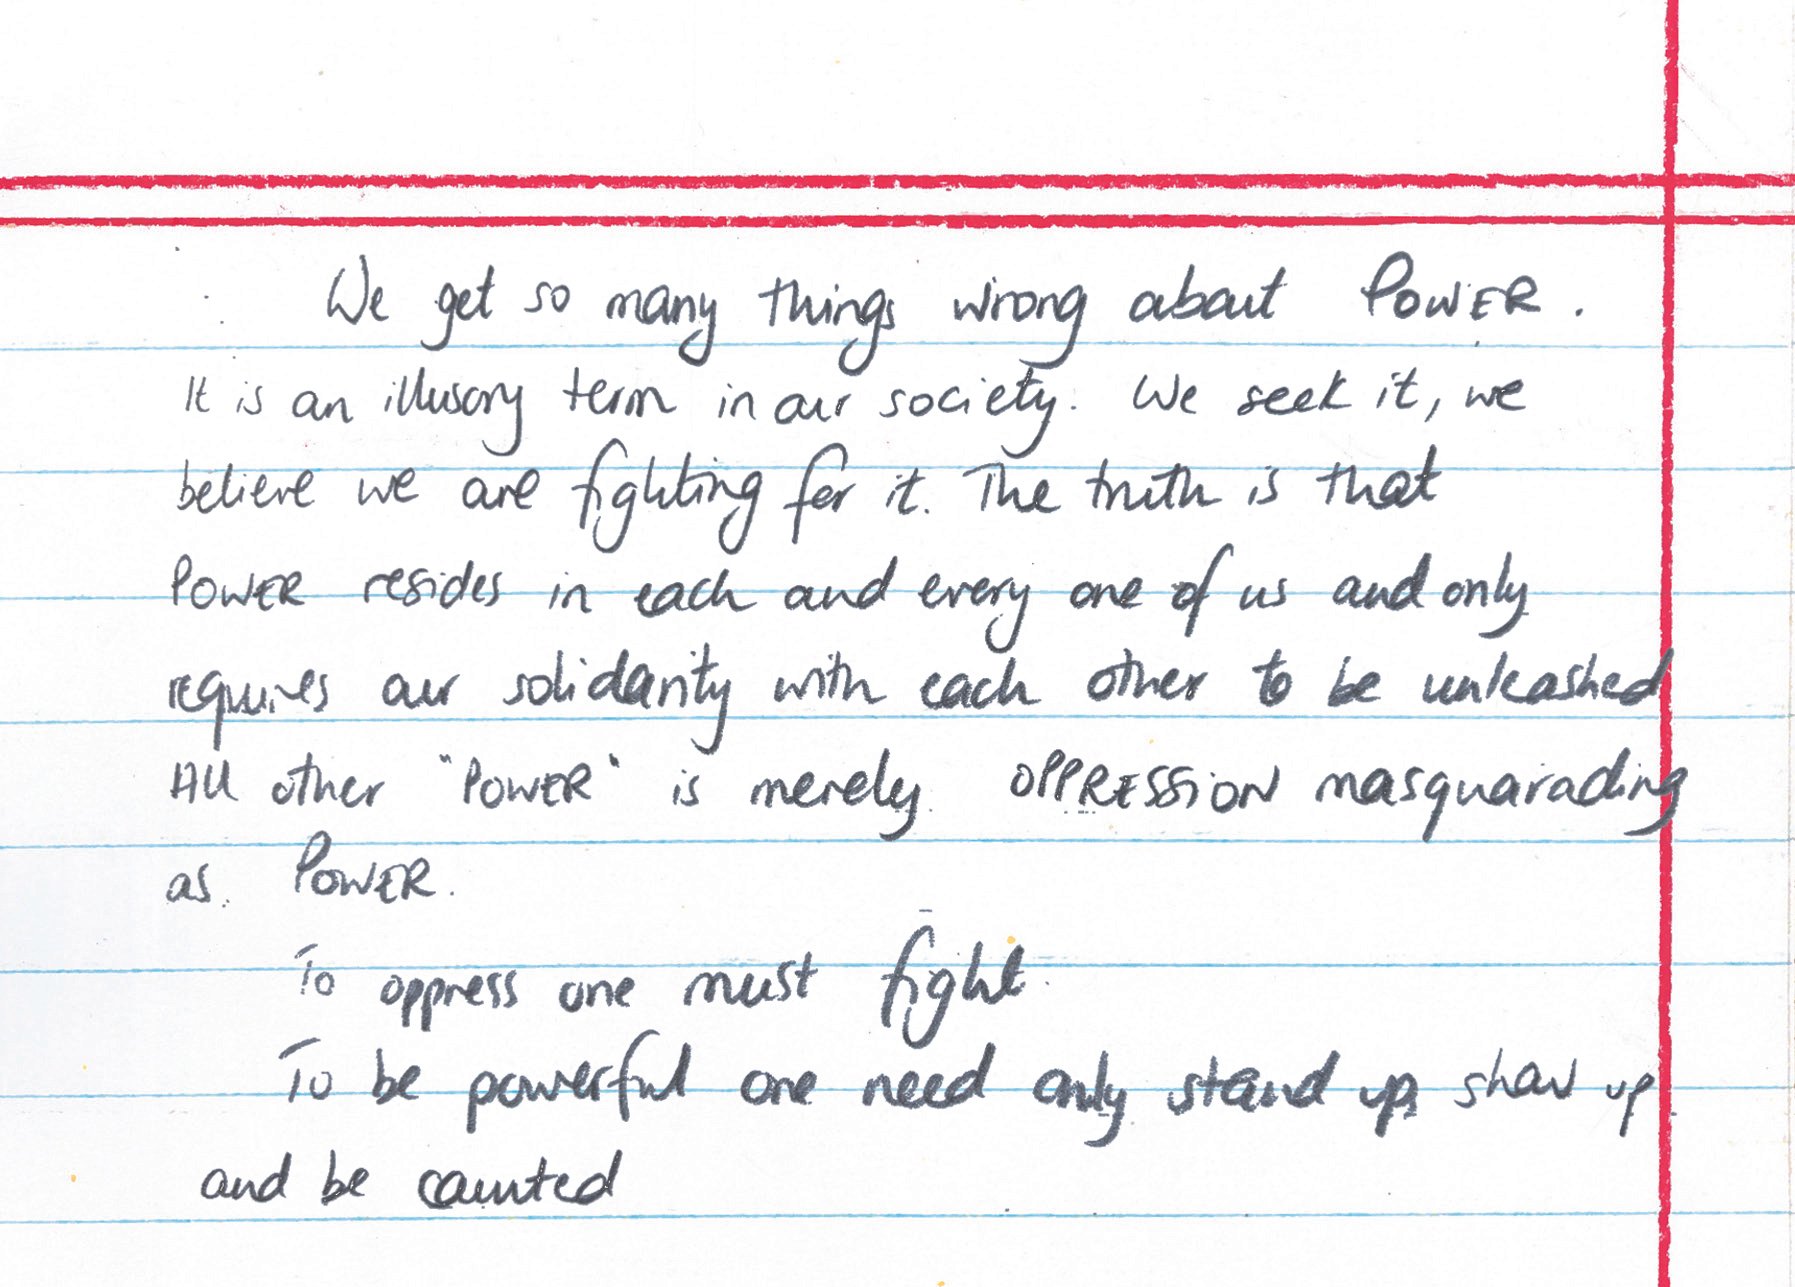 We get so many things wrong about POWER.
It is an illusory term in our society. We seek it, we
believe we are fighting for it. The truth is that
POWER resides in each and every one of us and only
requires our solidarity with each other to be unleashed
All other "POWER" is merely OPPRESSION masquarading
as POWER.
To oppress one must fight.
To be powerful one need only stand up, show up
and be counted